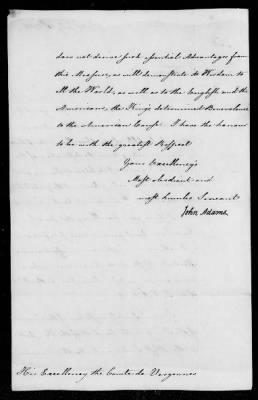 does not derive such essential Advantages from
this Measure, as will demonstrate its Wisdom to
All the World, as well as to the English and the
Americans, the King's determined Benevolence
to the American Cause. I have the honour
to be with the greatest Respect
Your Excellency's
Most obedient and
most humble Servant
John Adams.
His Excellency the Comte de Vergennes